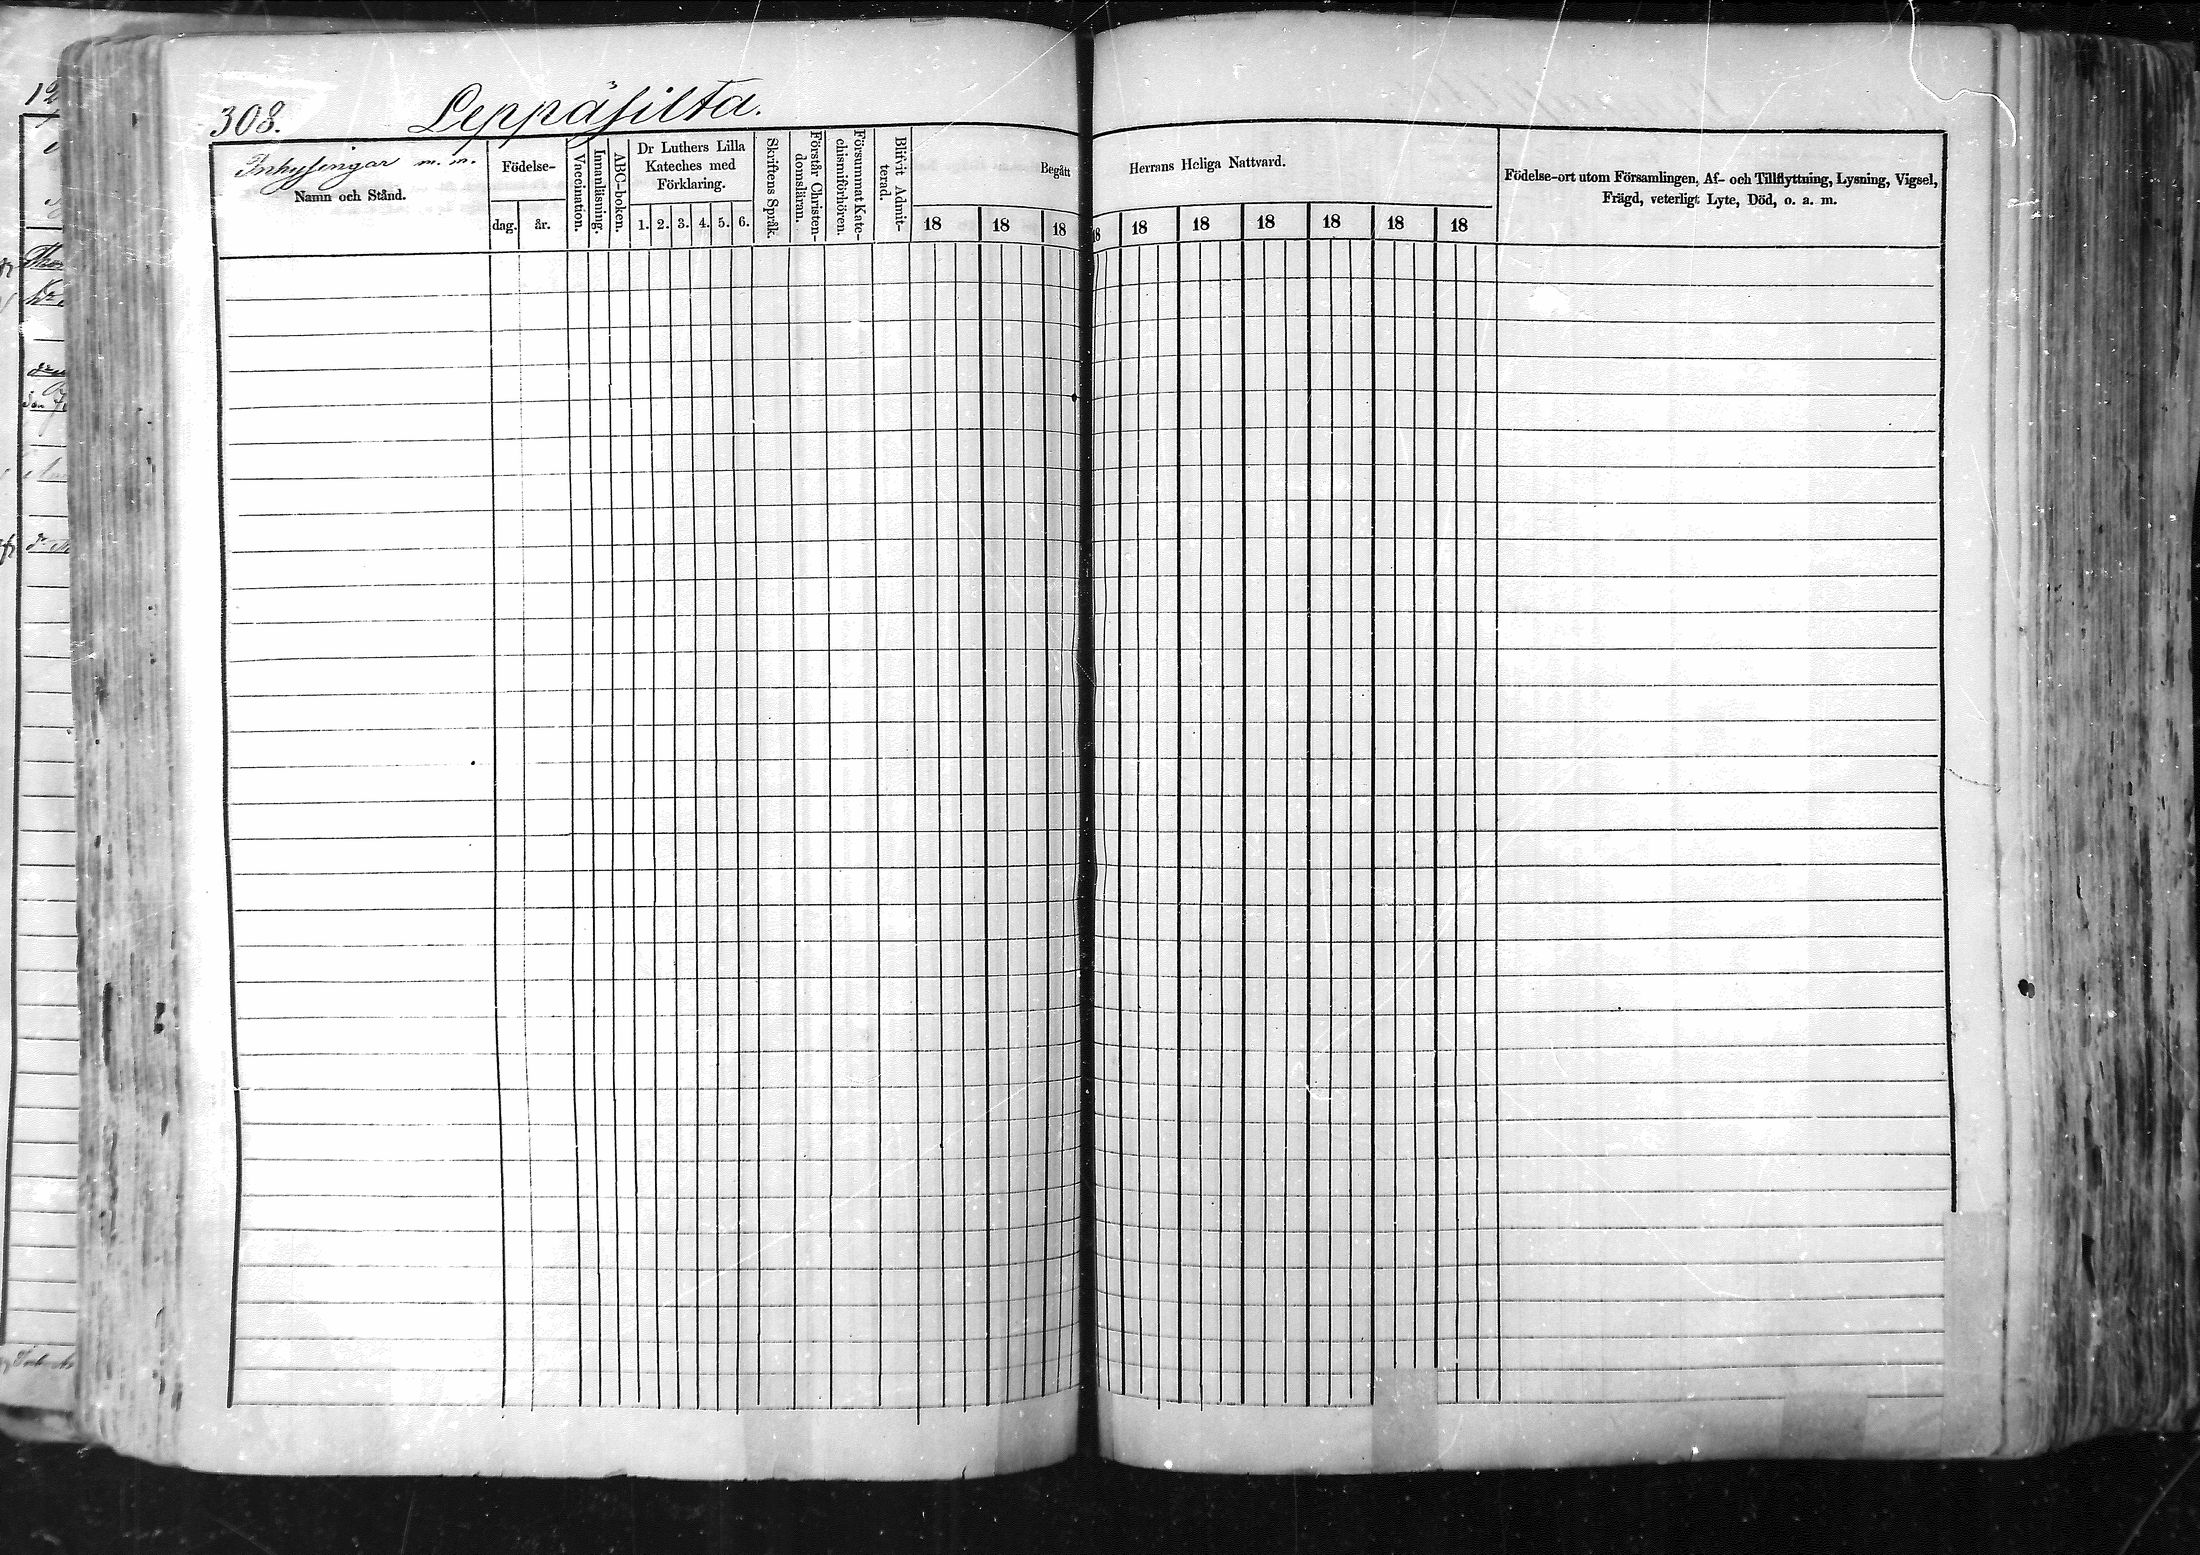 308.
Leppäsilta.
Inhysingar m. m.
Namn och Stånd.
Födelse-
dag.
år.
Vaccination.
Innanläsning.
ABC-boken.
Dr Luthers Lilla
Kateches med
Förklaring.
1. 2. 3. 4. 5. 6.
Skriftens Språk.
Förstår Christen-
domsläran.
Försummat Kate-
chismiförhören.
Blifvit Admit-
terad.
Begått
18 18 18
Herrans Heliga Nattvard.
18 18 18 18 18 18 18
Födelse-ort utom Församlingen, Af- och Tillflyttning, Lysning, Vigsel,
Frägd, veterligt Lyte, Död, o. a. m.